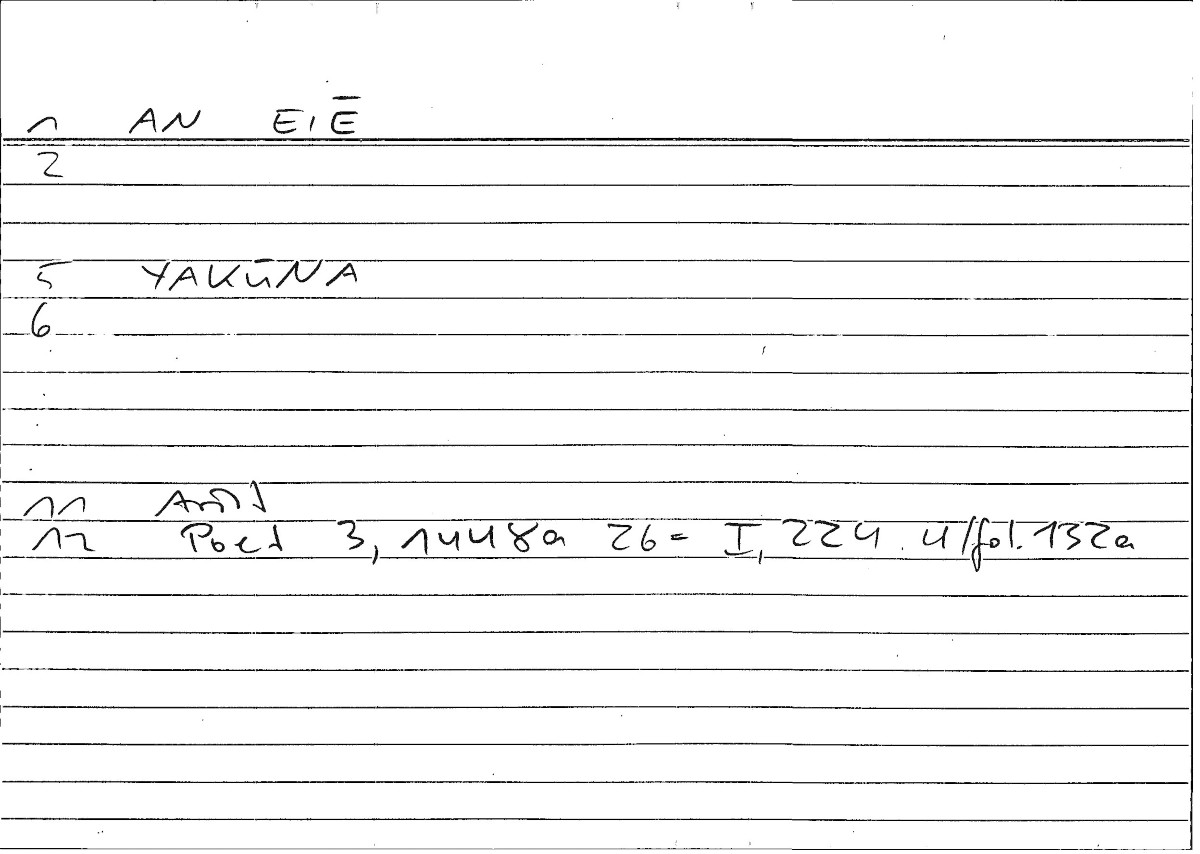 1 AN EIĒ
2
5 YAKŪNA
6
11 Arist
12 Poet 3, 1448a 26 = I, 224. 4/fol. 132a